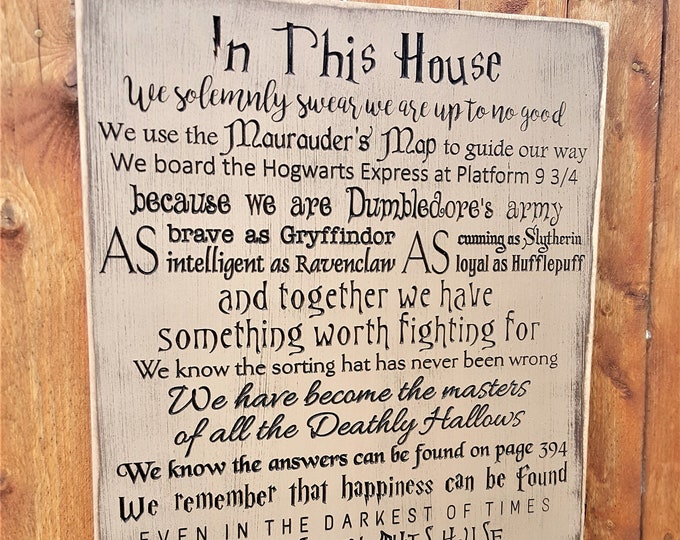 In This House
We solemnly swear we are up to no good
We use the Maurauder's Map to guide our way
We board the Hogwarts Express at Platform 9 3/4
because we are Dumbledore's army
AS brave as Gryffindor AS cunning as Slytherin
intelligent as Ravenclaw loyal as Hufflepuff
and together we have
something worth fighting for
We know the sorting hat has never been wrong
We have become the masters
of all the Deathly Hallows
We know the answers can be found on page 394
We remember that happiness can be found
EVEN IN THE DARKEST OF TIMES